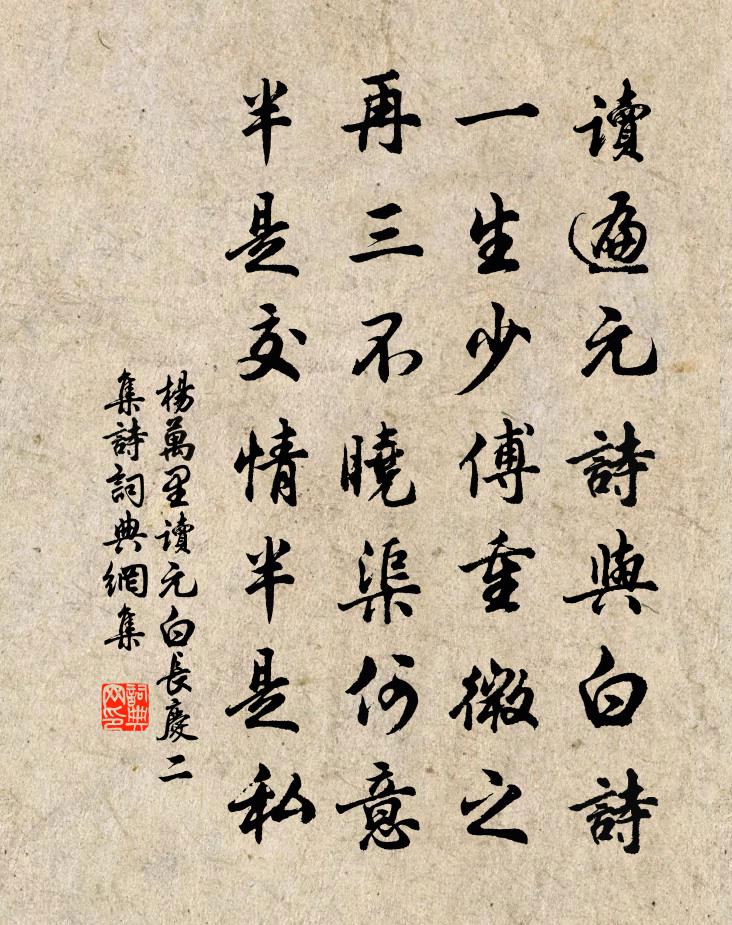 讀遍元詩與白詩
一生少傅重微之
再三不曉渠何意
半是交情半是私
楊萬里讀元白長慶二
集詩詞典網集
詞典
网印